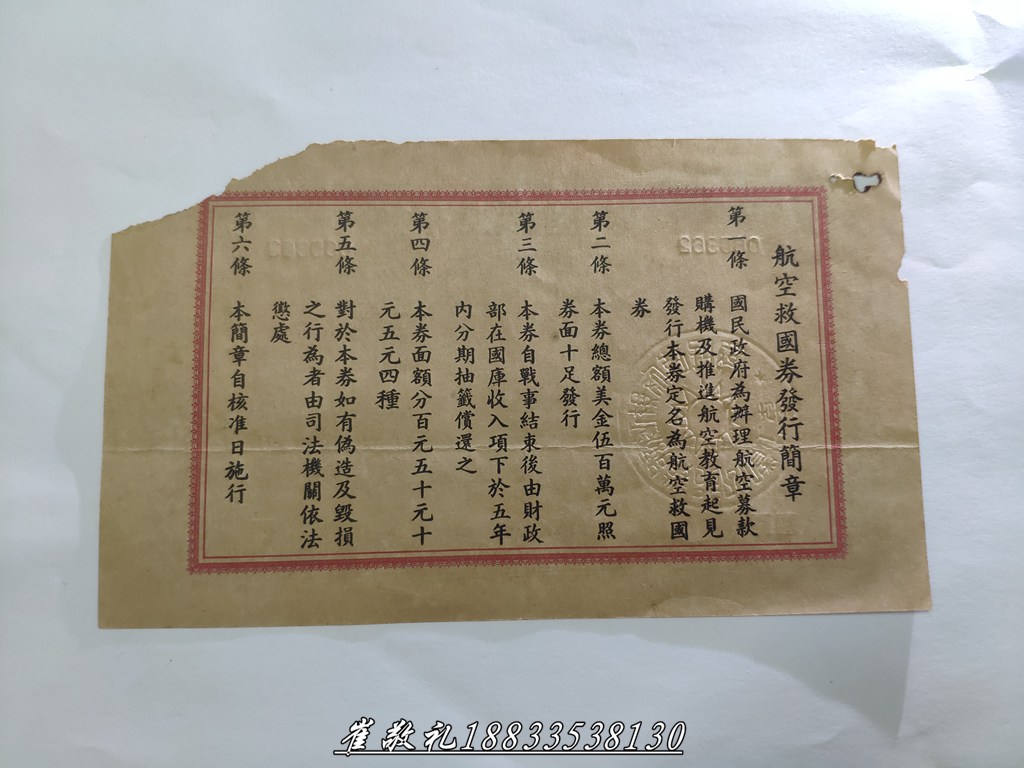 航空救國券發行簡章
第一條 國民政府為辦理航空募款
購機及推進航空教育起見
發行本券定名為航空救國
券
第二條 本券總額美金伍百萬元照
券面十足發行
第三條 本券自戰事結束後由財政
部在國庫收入項下於五年
內分期抽籤償還之
第四條 本券面額分百元五十元十
元五元四種
第五條 對於本券如有偽造及毀損
之行為者由司法機關依法
懲處
第六條 本簡章自核准日施行
崔敬礼18833538130